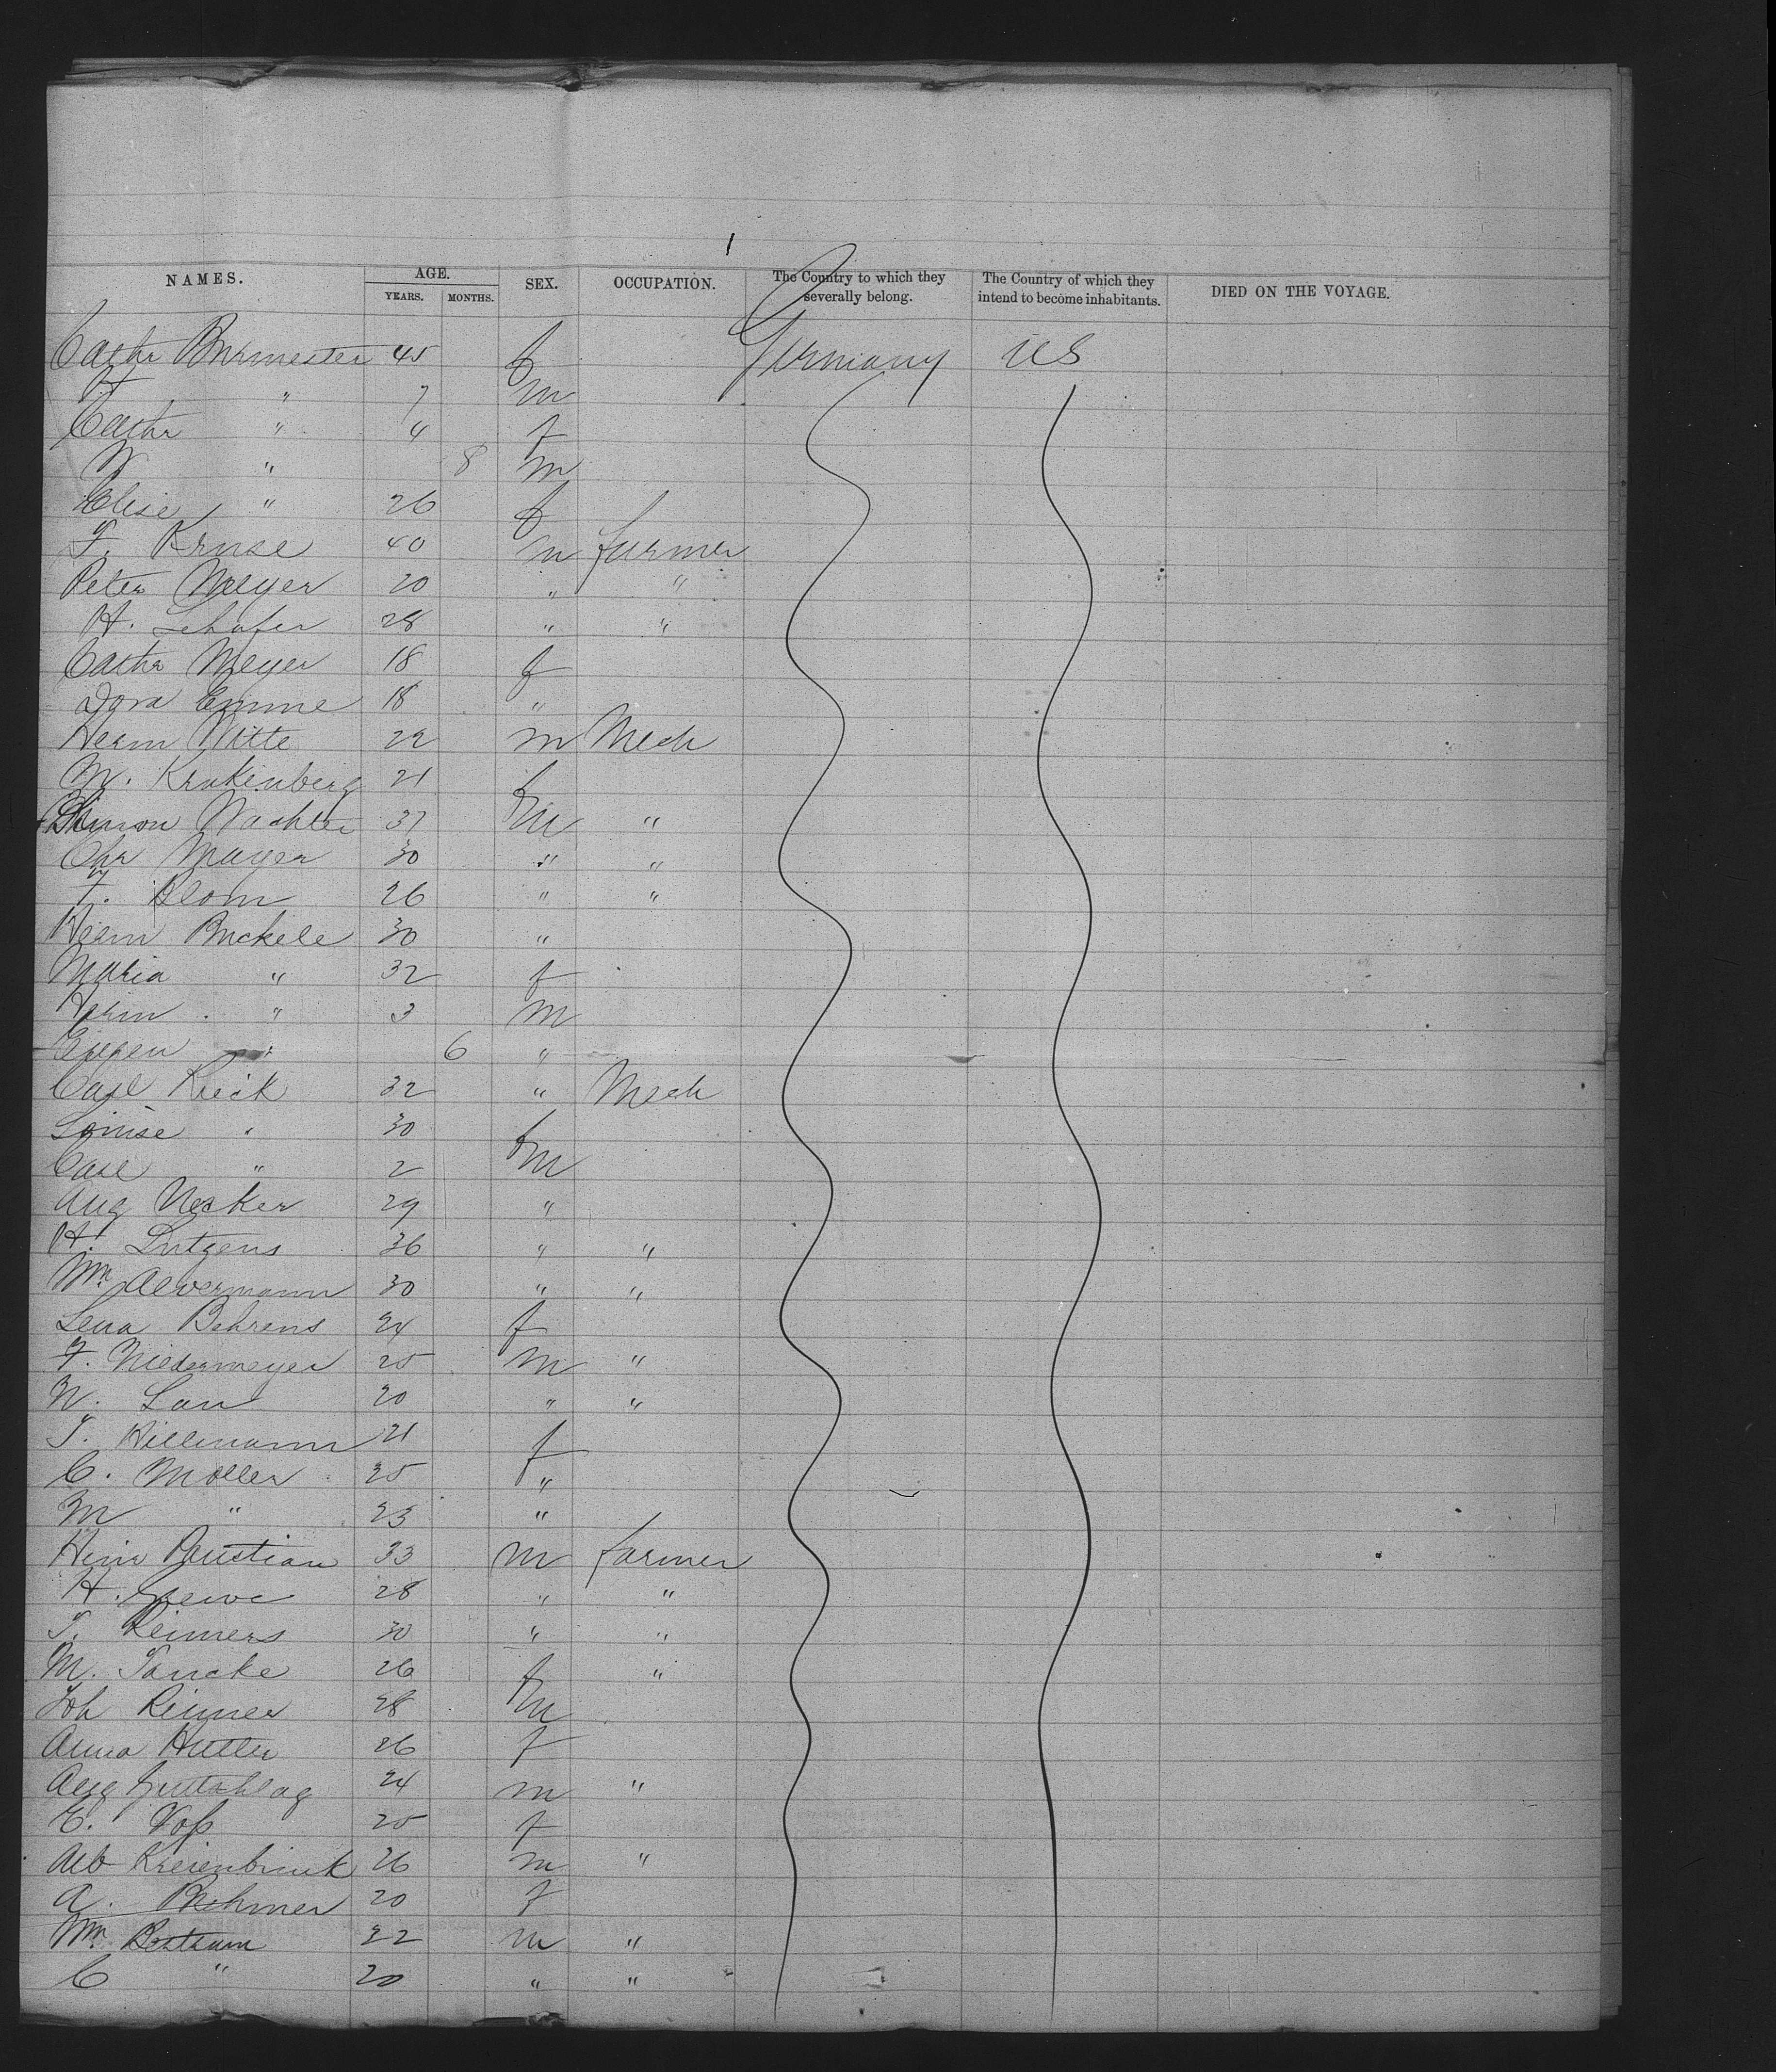 NAMES. AGE. SEX. OCCUPATION. The Country to which they severally belong. The Country of which they intend to become inhabitants. DIED ON THE VOYAGE.
YEARS. MONTHS.
Cathr Burmester 45 f Germany US
H " 7 m
Cathr " 4 f
W " 8 m
Elise " 26 f
F. Kruse 40 m farmer
Peter Meyer 20 " "
H. Schafer 28 " "
Cathr Meyer 18 f
Dora Emme 18 "
Herm Witte 22 m Mech
M. Krakenberg 21 f
Simon Wachter 37 m "
Chr Mayer 30 " "
F. Blom 26 " "
Herm Buckele 30 "
Maria " 32 f
Herm " 3 m
Eugen " 6 "
Carl Rieck 32 " Mech
Louise " 30 f
Carl " 2 m
Aug Necker 29 "
H. Lutgens 36 " "
Wm. Alvermann 30 " "
Lena Behrens 24 f
F. Niedermeyer 25 m "
N. Lau 20 " "
T. Hillmann 21 f
C. Moller 25 "
M " 23 "
Hinr Paustian 33 m farmer
H. Grewe 28 " "
T. Reimers 30 " "
M. Tancke 26 f "
Joh Reimer 28 m
Anna Hutter 26 f
Aug Gutschlag 24 m "
E. Voß 25 f
Alb Kreienbrink 26 m "
A. 20 f
Wm. Bertram 22 m "
C " 20 " "